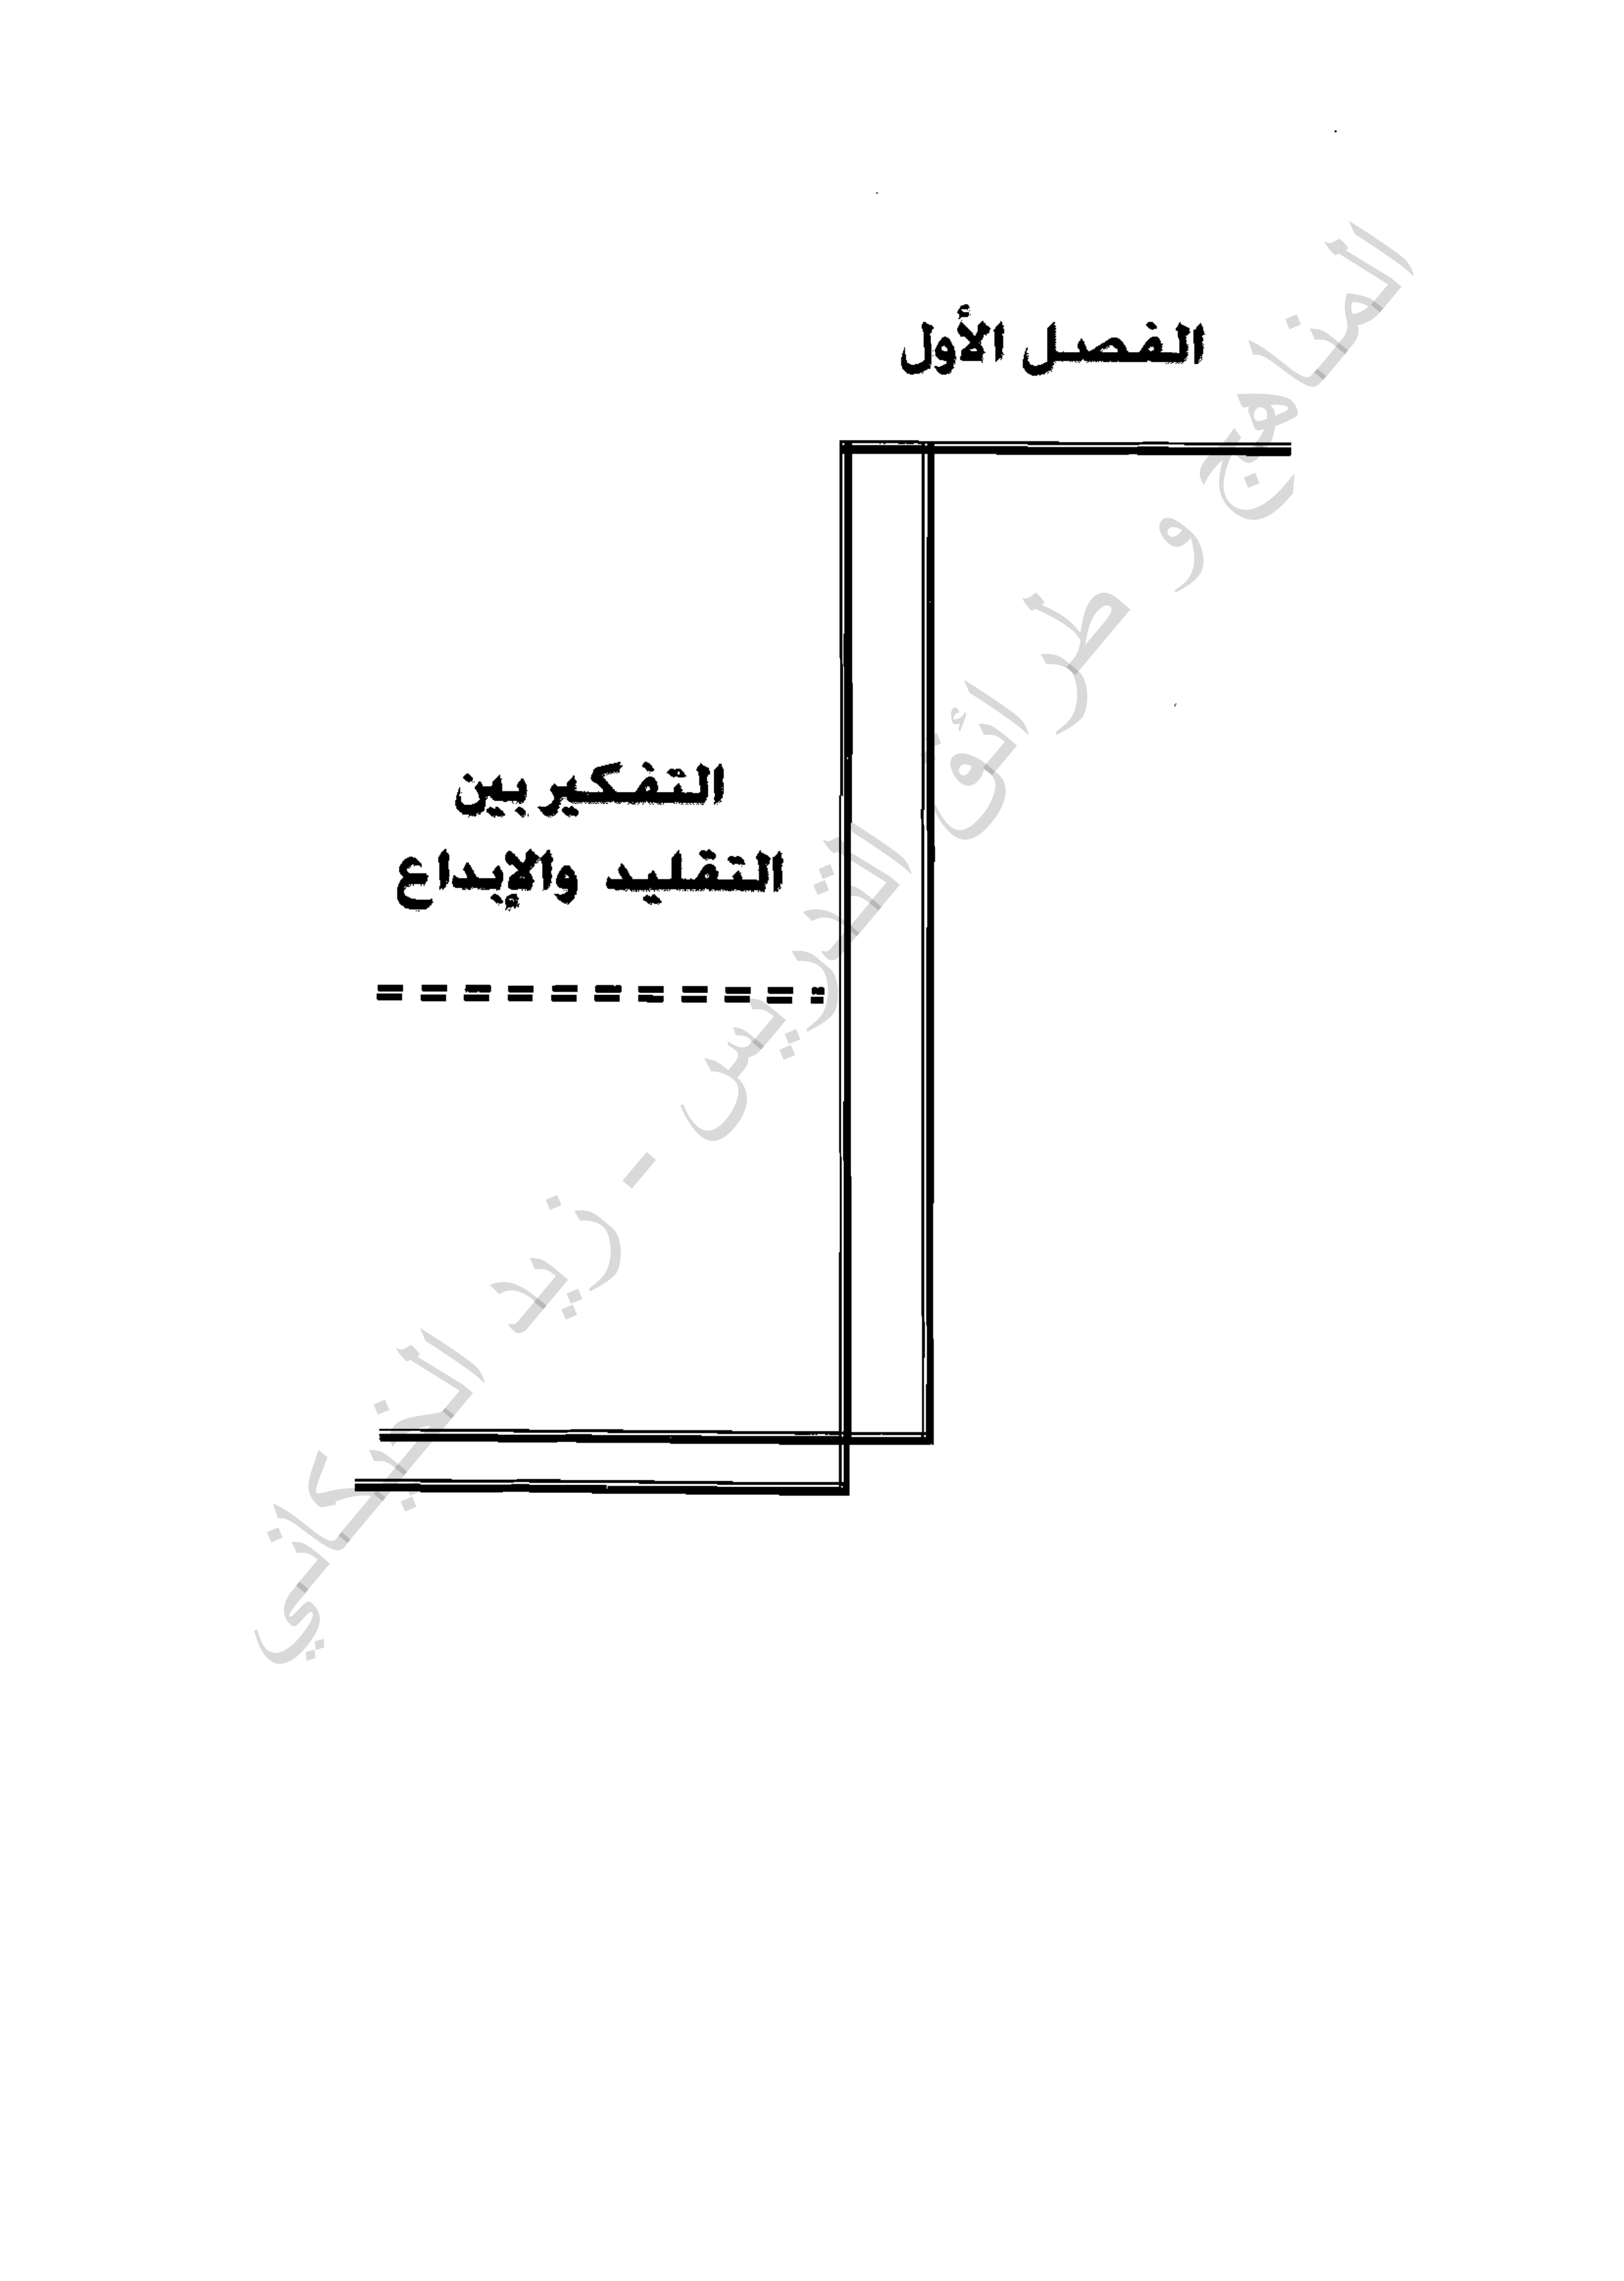 الفصل الأول
التفكير بين
التقليد والإبداع
المناهج و طرائق التدريس - زيد الخيكاني